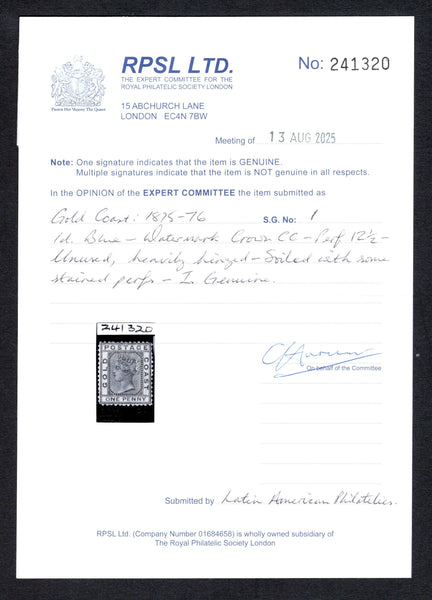 RPSL LTD.
THE EXPERT COMMITTEE FOR THE
ROYAL PHILATELIC SOCIETY LONDON
No: 241320
Patron Her Majesty The Queen
15 ABCHURCH LANE
LONDON EC4N 7BW
Meeting of 13 AUG 2025
Note: One signature indicates that the item is GENUINE.
Multiple signatures indicate that the item is NOT genuine in all respects.
In the OPINION of the EXPERT COMMITTEE the item submitted as
Gold Coast: 1875-76 S.G. No: 1
1d. Blue - Watermark Crown CC - Perf. 12½ -
Unused, heavily hinged - Soiled with some
stained perfs - Is Genuine.
241320
POSTAGE
GOLD COAST
ONE PENNY
On behalf of the Committee
Submitted by Latin American Philatelics.
RPSL Ltd. (Company Number 01684658) is wholly owned subsidiary of
The Royal Philatelic Society London